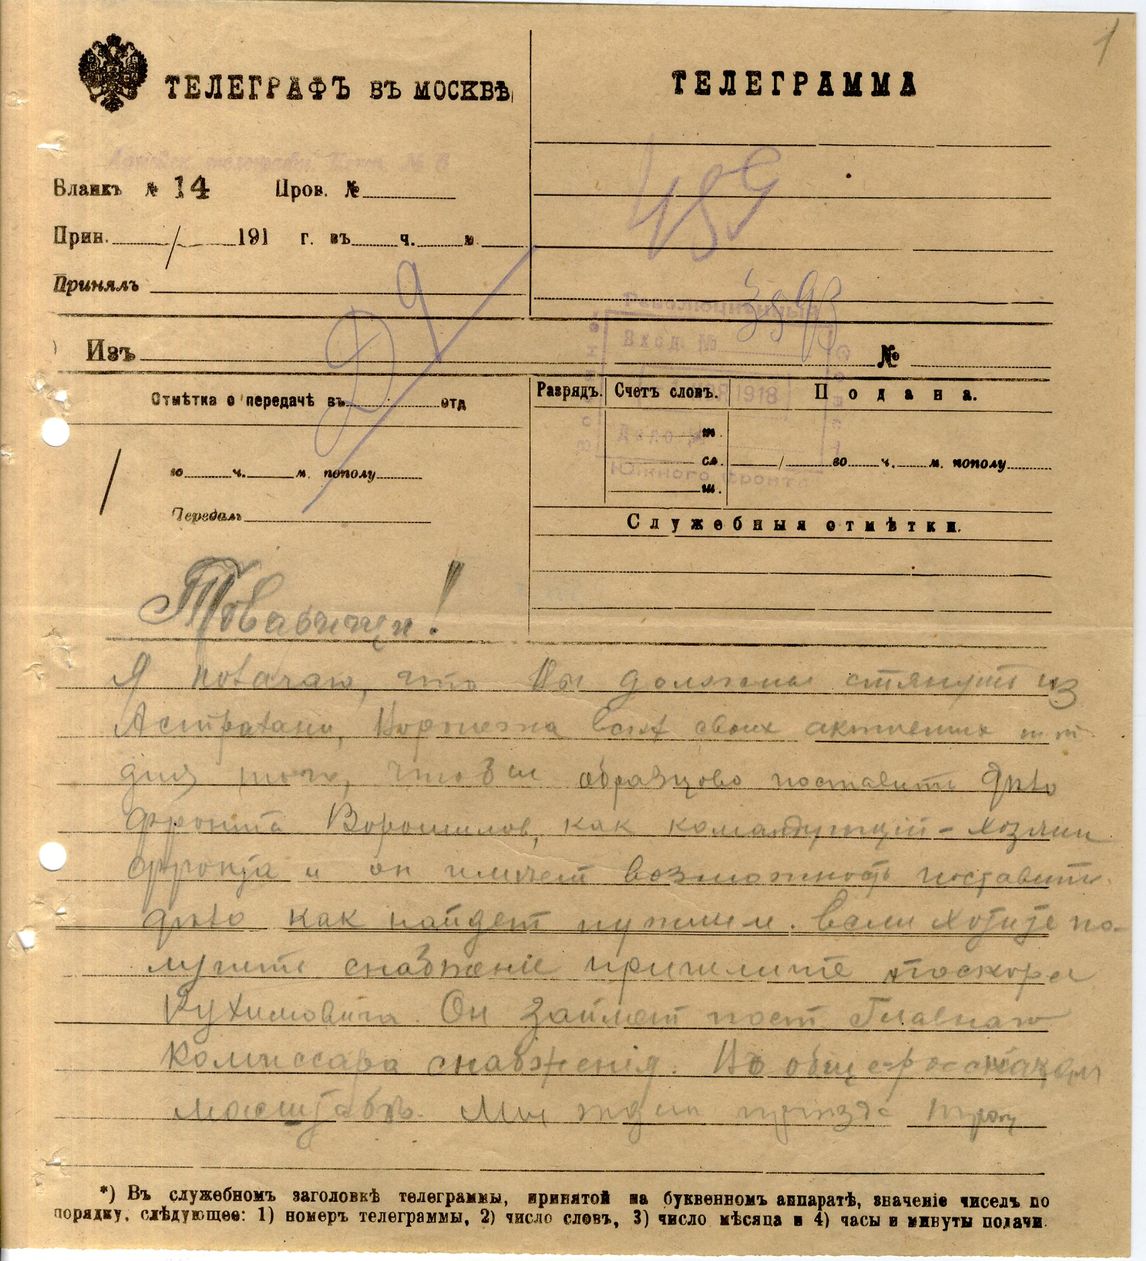 1
ТЕЛЕГРАФЪ ВЪ МОСКВѢ
ТЕЛЕГРАММА
Бланкъ № 14 Пров. №
489
Прин. / 191 г. въ ч. м.
Принялъ
Д 9
Революціонный
Изъ №
Вход. № 3393
Отмѣтка о передачѣ въ отд
Разрядъ. Счетъ словъ. Подана.
1918
Дѣло №
т.
сл.
ш.
/ во ч. м. пополу
Южного фронта
/ го ч. м. пополу
Передалъ
Служебныя отмѣтки.
Товарищи!
Я полагаю, что Вы должны стянуть из
Астрахани, Воронежа всех своих активных
для того, чтобы образцово поставить дѣло
фронта Ворошилов, как командующій - хозяин
фронта и он имеет возможность поставить
дѣло как найдет нужным. Если хотите по-
лучить снабженіе пришлите скоро
Рухимовича. Он займет пост Главнаго
Комиссара снабженія. Во обще-российском
масштабѣ. Мы ждем
*) Въ служебномъ заголовкѣ телеграммы, принятой на буквенномъ аппаратѣ, значеніе чиселъ по
порядку, слѣдующее: 1) номеръ телеграммы, 2) число словъ, 3) число мѣсяца и 4) часы и минуты подачи.